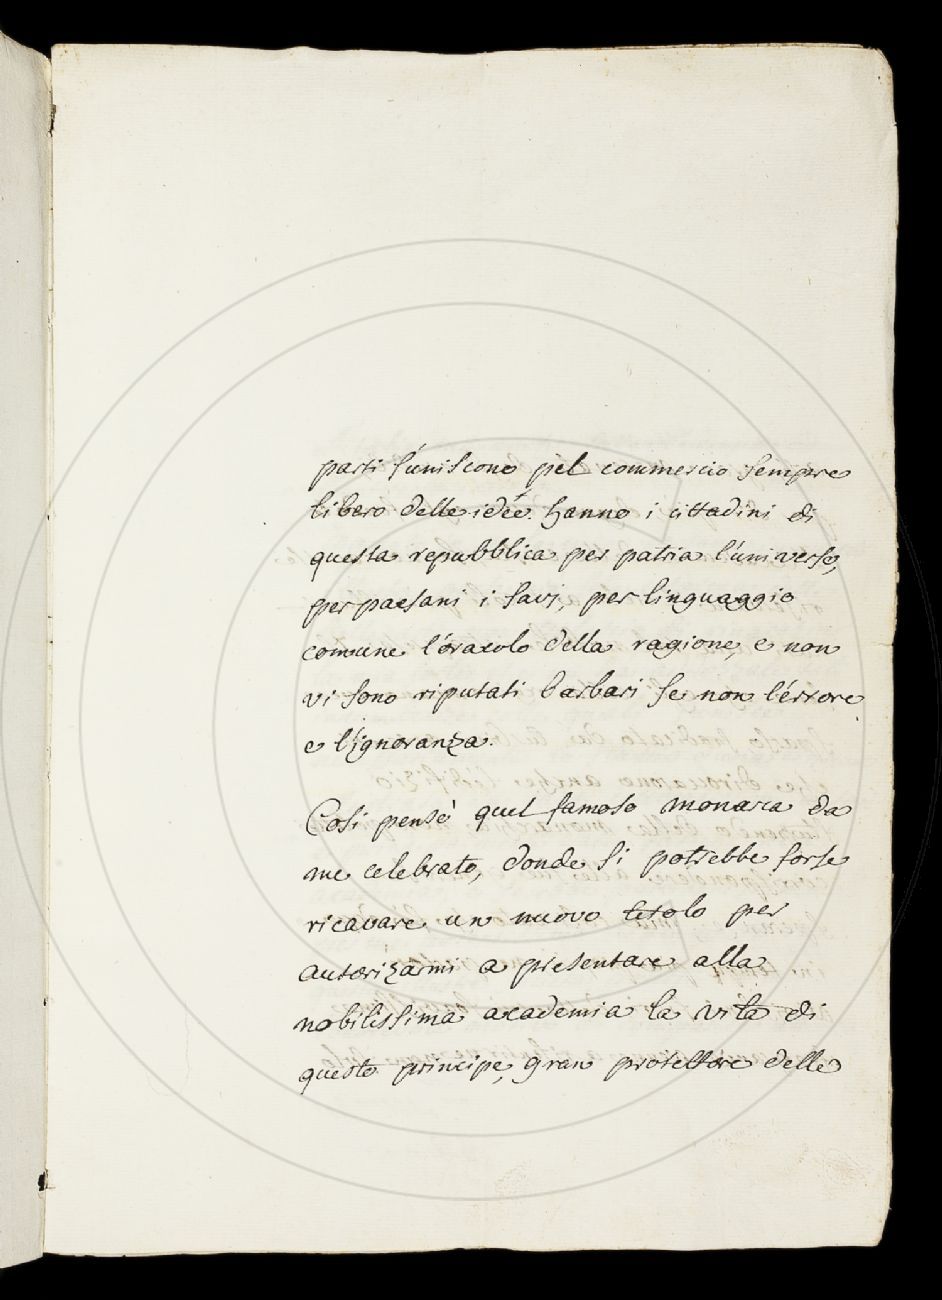 parti s'uniscono pel commercio sempre
libero delle idée. hanno i cittadini di
questa repubblica per patria l'universo,
per paesani i savj, per linguaggio
comune l'oracolo della ragione, e non
vi sono riputati barbari se non l'errore
e l'ignoranza.
Così pensò quel famoso monarca da
me celebrato, donde si potrebbe forse
ricavare un nuovo titolo per
autorizarmi a presentare alla
nobilissima academia la vita di
questo principe, gran protettore delle